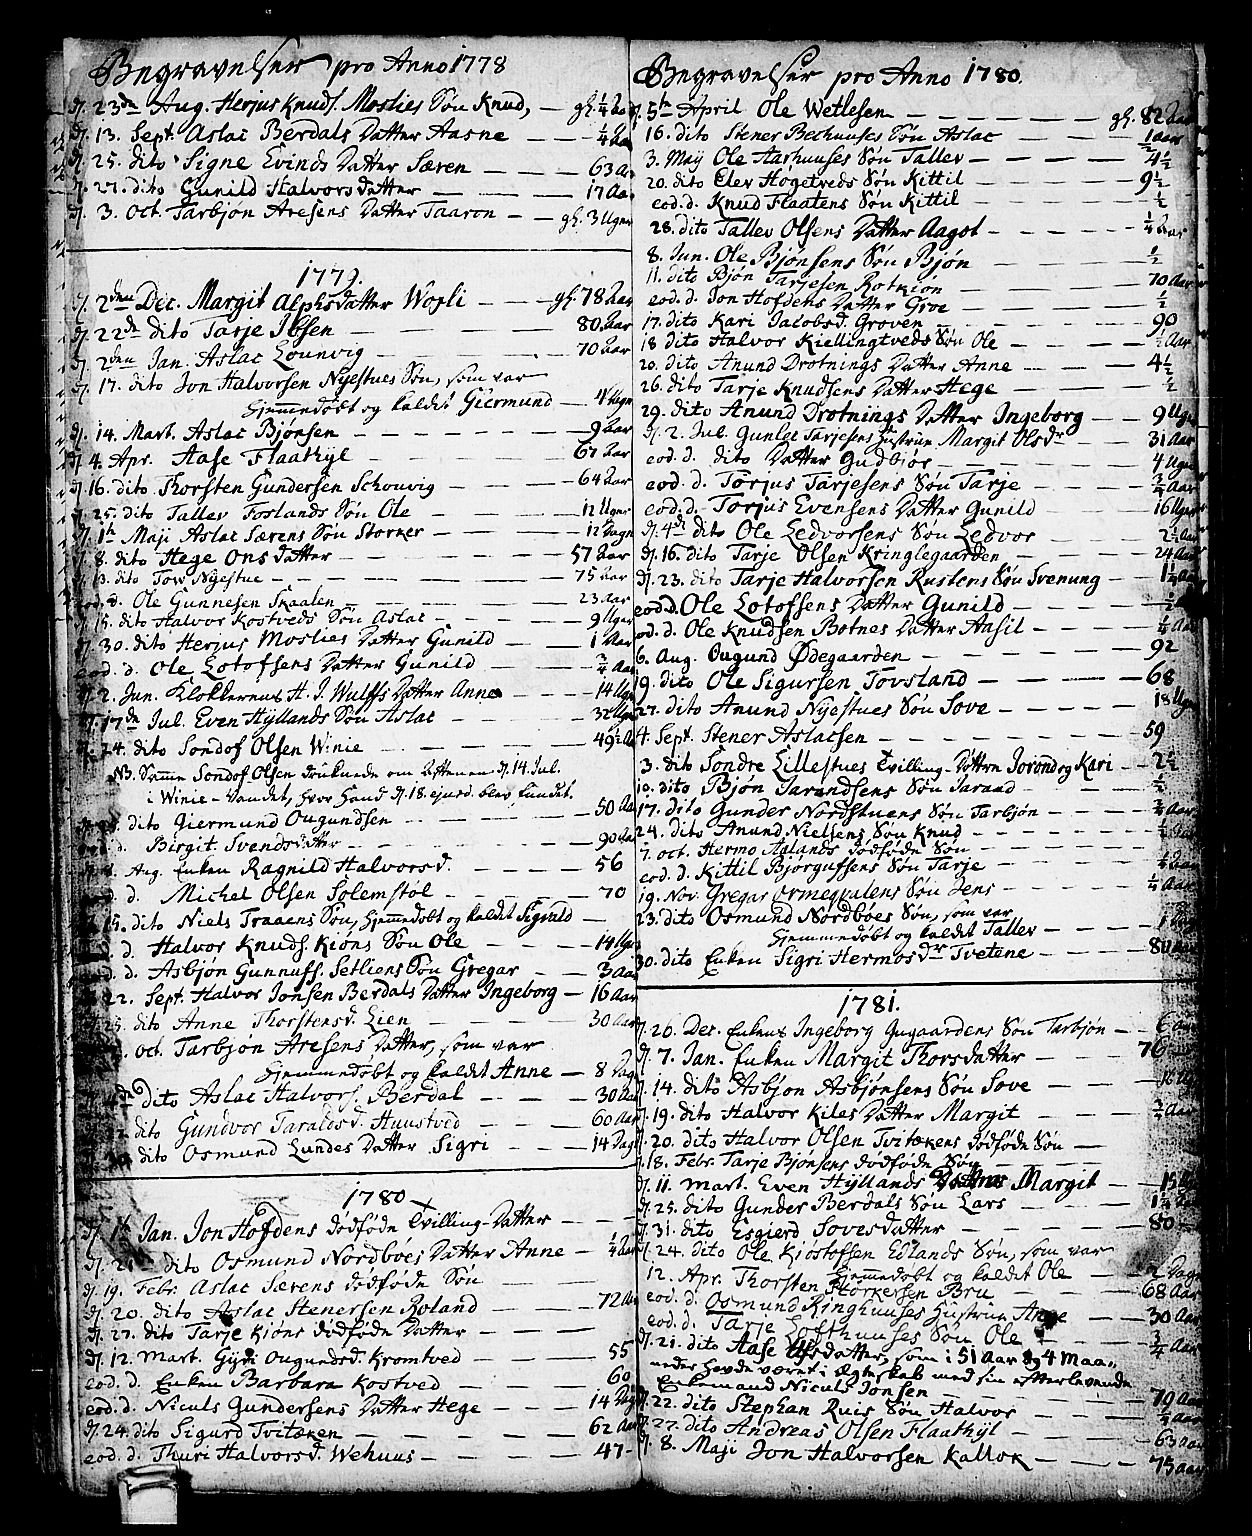 Begravelser pro Anno 1778
d. 23de Aug. Herjus Knuds. Moslies Søn Knud, — gl. 1/4 Aar
d. 13. Sept. Aslac Berdals Datter Aasne — 1/4 Aar
d. 25. dito Signe Evinds Datter Særen — 63 Aar
d. 27. dito Gunild Halvors datter — 17 Aar
d. 3. Oct. Tarbjøn Aresens Datter Taaron — gl. 3 Uger
1779.
d. 2den Dec. Margit Alphsdatter Wopli — gl. 78 Aar
d. 22de dito Tarje Ibsen — 80 Aar
d. 2den Jan. Aslac Lounvig — 70 Aar
d. 17. dito Jon Halvorsen Nyestues Søn, som var
hjemmedøbt og kaldet Giermund — 4 Uger
d. 14. Mart. Aslac Bjønsen — 9 Aar
d. 4. Apr. Aase Flaathyl — 67 Aar
d. 16. dito Thorsten Gundersen Schouvig — 64 Aar
d. 25. dito Tallev Foslands Søn Ole — 12 Uger
d. 1te Maji Aslac Særens Søn Storker — 12 Dage
d. 8. dito Hege Ons datter — 57 Aar
d. 13. dito Tow Nyestue — 75 Aar
eod. d. Ole Gunnesen Skaalen — 23 Aar
d. 15. dito Halvor Kostveds Søn Aslac — 9 Uger
d. 30. dito Herjus Moslies Datter Gunild — 1 Aar
eod. d. Ole Lotofsens Datter Gunild — 3/4 Aar
d. 2. Jun. Klokkernes H. J. Wulffs Datter Anne — 14 Uger
d. 17de Jul. Even Hyllands Søn Aslac — 32 Uger
d. 24. dito Sondof Olsen Winie — 49 1/2 Aar
NB. Samme Sondof Olsen druknede om Aftenen d. 14. Jul.
i Winie-Vandet, hvor hand d. 18. ejusd. blev fundet.
dito Giermund Ougundsen — 50 Aar
d. Birgit Svendsdatter — 90 Aar
Aug. Enken Ragnild Halvorsd. — 56
d. Michel Olsen Solemstol — 70
15. dito Niels Traaens Søn, hjemmedøbt og kaldet Sigvild —
d. Halvor Knuds. Kións Søn Ole — 14 Uger
d. Asbjøn Gunnufs. Setliens Søn Gregar — 3 Aar
22. Sept. Halvor Jonsen Berdals Datter Ingeborg — 16 Aar
25. dito Anne Thorstensd. Lien — 30 Aar
Oct. Tarbjøn Aresens Datter, som var
hjemmedøbt og kaldet Anne — 8 Dage
dito Aslac Halvors. Berdal — 30 Aar
dito Gundvor Taraldsd. Huustved — 60 Aar
dito Osmund Lundes Datter Sigri — 14 Dage
1780
d. 1te Jan. Jon Hofdens dødføde Tvilling-Datter —
d. 21. dito Osmund Nordbøes Datter Anne — 1/4 Aar
d. 19. Febr. Aslac Særens dødføde Søn —
d. 20. dito Aslac Stenersen Roland — 72 Aar
d. 27. dito Tarje Kións dødføde Datter —
d. 12. Mart. Gyri Ougundsd. Kromtved — 55
eod. d. Enken Barbara Kostved — 60
eod. d. Niculs Gundersens Datter Hege — 14 Dage
d. 24. dito Sigurd Tvitæken — 62 Aar
eod. d. Thuri Halvorsd. Wehuus — 47 -
Begravelser pro Anno 1780.
d. 5te April Ole Wetlesen — gl. 82 Aar
16. dito Stener Bechuuses Søn Aslac — 1 Aar
3. Maÿ Ole Aarhuuses Søn Tallev — 4 1/2
20. dito Elev Høgetveds Søn Kittil — 9 1/2
eod. d. Knud Flaatens Søn Kittil — 1/2
28. dito Tallev Olsens Datter Aagot — 1/4 Aar
8. Jun. Ole Bjønsens Søn Bjøn — 1/2
11. dito Bjøn Tarjesen Rotkion — 70 Aar
eod. d. Jon Hofdens Datter Groe — 1/2
17. dito Kari Jacobsd. Groven — 90
18 dito Halvor Kiellingtveds Søn Ole — 1/2 Aar
20. dito Anund Drotnings Datter Anne — 4 1/2
26. dito Tarje Knudsens Datter Hege — 1/2
29. dito Anund Drotnings Datter Ingeborg — 9 Uger
d. 2. Jul. Gunlec Tarjesens Hustrue Margit Olsdr — 31 Aar
eod. d. dito Datter Gudbjør — 4 Uger
eod. d. Torjus Tarjesens Søn Tarje — 3/4 Aar
eod. d. Torjus Evensens Datter Gunild — 16 Uger
d. 4de dito Ole Ledvorsens Søn Ledvor — 2 1/2 Aar
d. 16. dito Tarje Olsen Kringlegaarden — 24 Aar
d. 23. dito Tarje Halvorsen Rustens Søn Svenung — 1 1/4 Aar
eod. d. Ole Lotofsens Datter Gunild — 1/2 Aar
eod. d. Ole Knudsen Botnes Datter Ansil — 1/4 Aar
6. Aug. Ougund Ødegaarden — 92
19. dito Ole Sigursen Tovsland — 68
27. dito Anund Nyestues Søn Sove — 18 Uger
4. Sept. Stener Aslacsen — 59
3. dito Sondre Lillestues Tvilling-Døttre Jorond og Kari — 2 1/2
10. dito Bjøn Jarandsens Søn Jarand — 1/2
17. dito Gunder Nordstuens Søn Tarbjøn — 3/4 Aar
24. dito Anund Nielsens Søn Knud — 1/4 Aar
7. Oct. Hermo Aalands dødføde Søn —
eod. d. Kittil Bjørgufsens Søn Tarje — 1/4 Aar
19. Nov. Gregar Ormegvalens Søn Jens — 1/4 Aar
23. dito Osmund Nordbøes Søn, som var
hjemmedøbt og kaldet Tallev — 1
30. dito Enken Sigri Hermosdr Tvetene — 80
1781.
d. 26. Dec. Enkens Ingeborg Gugaardens Søn Tarbjøn — 6
d. 7. Jan. Enken Margit Thorsdatter — 76
d. 14. dito Asbjøn Asbjønsens Søn Sove —
d. 19. dito Halvor Kilas Datter Margit — 3/4 Aar
d. 20. dito Halvor Olsen Tvitækens dødføde Søn —
d. 18. Febr. Tarje Bjønsens dødføde Søn —
d. 11. Mart. Even Hyllands Datter Margit — 15
d. 25. dito Gunder Berdals Søn Lars — 1 1/2
d. 31. dito Esgierd Sovesdatter — 80
d. 24. dito Ole Kiostofsen Edlands Søn, som var
hjemmedøbt og kaldet Ole — 2 Dage
12. Apr. Thorsten Storkersen Bru — 68 Aar
eod. d. Osmund Ringhuuses Hustrue Anne — 30 Aar
eod. d. Tarje Lofthuuses Søn Ole — 3/4 Aar
d. 21. dito Aase Ulfsdatter, som i 51 Aar og 4 Maa-
neder havde været i Ægteskab med sin efterlevende
Enkemand Niculs Jonsen — 79 Aar
d. 22. dito Stephan Ruis Søn Halvor — 1/4 Aar
d. 27. dito Andreas Olsen Flaathyl — 63 Aar
d. 8. Maji Jon Halvorsen Kallok — 75 Aar